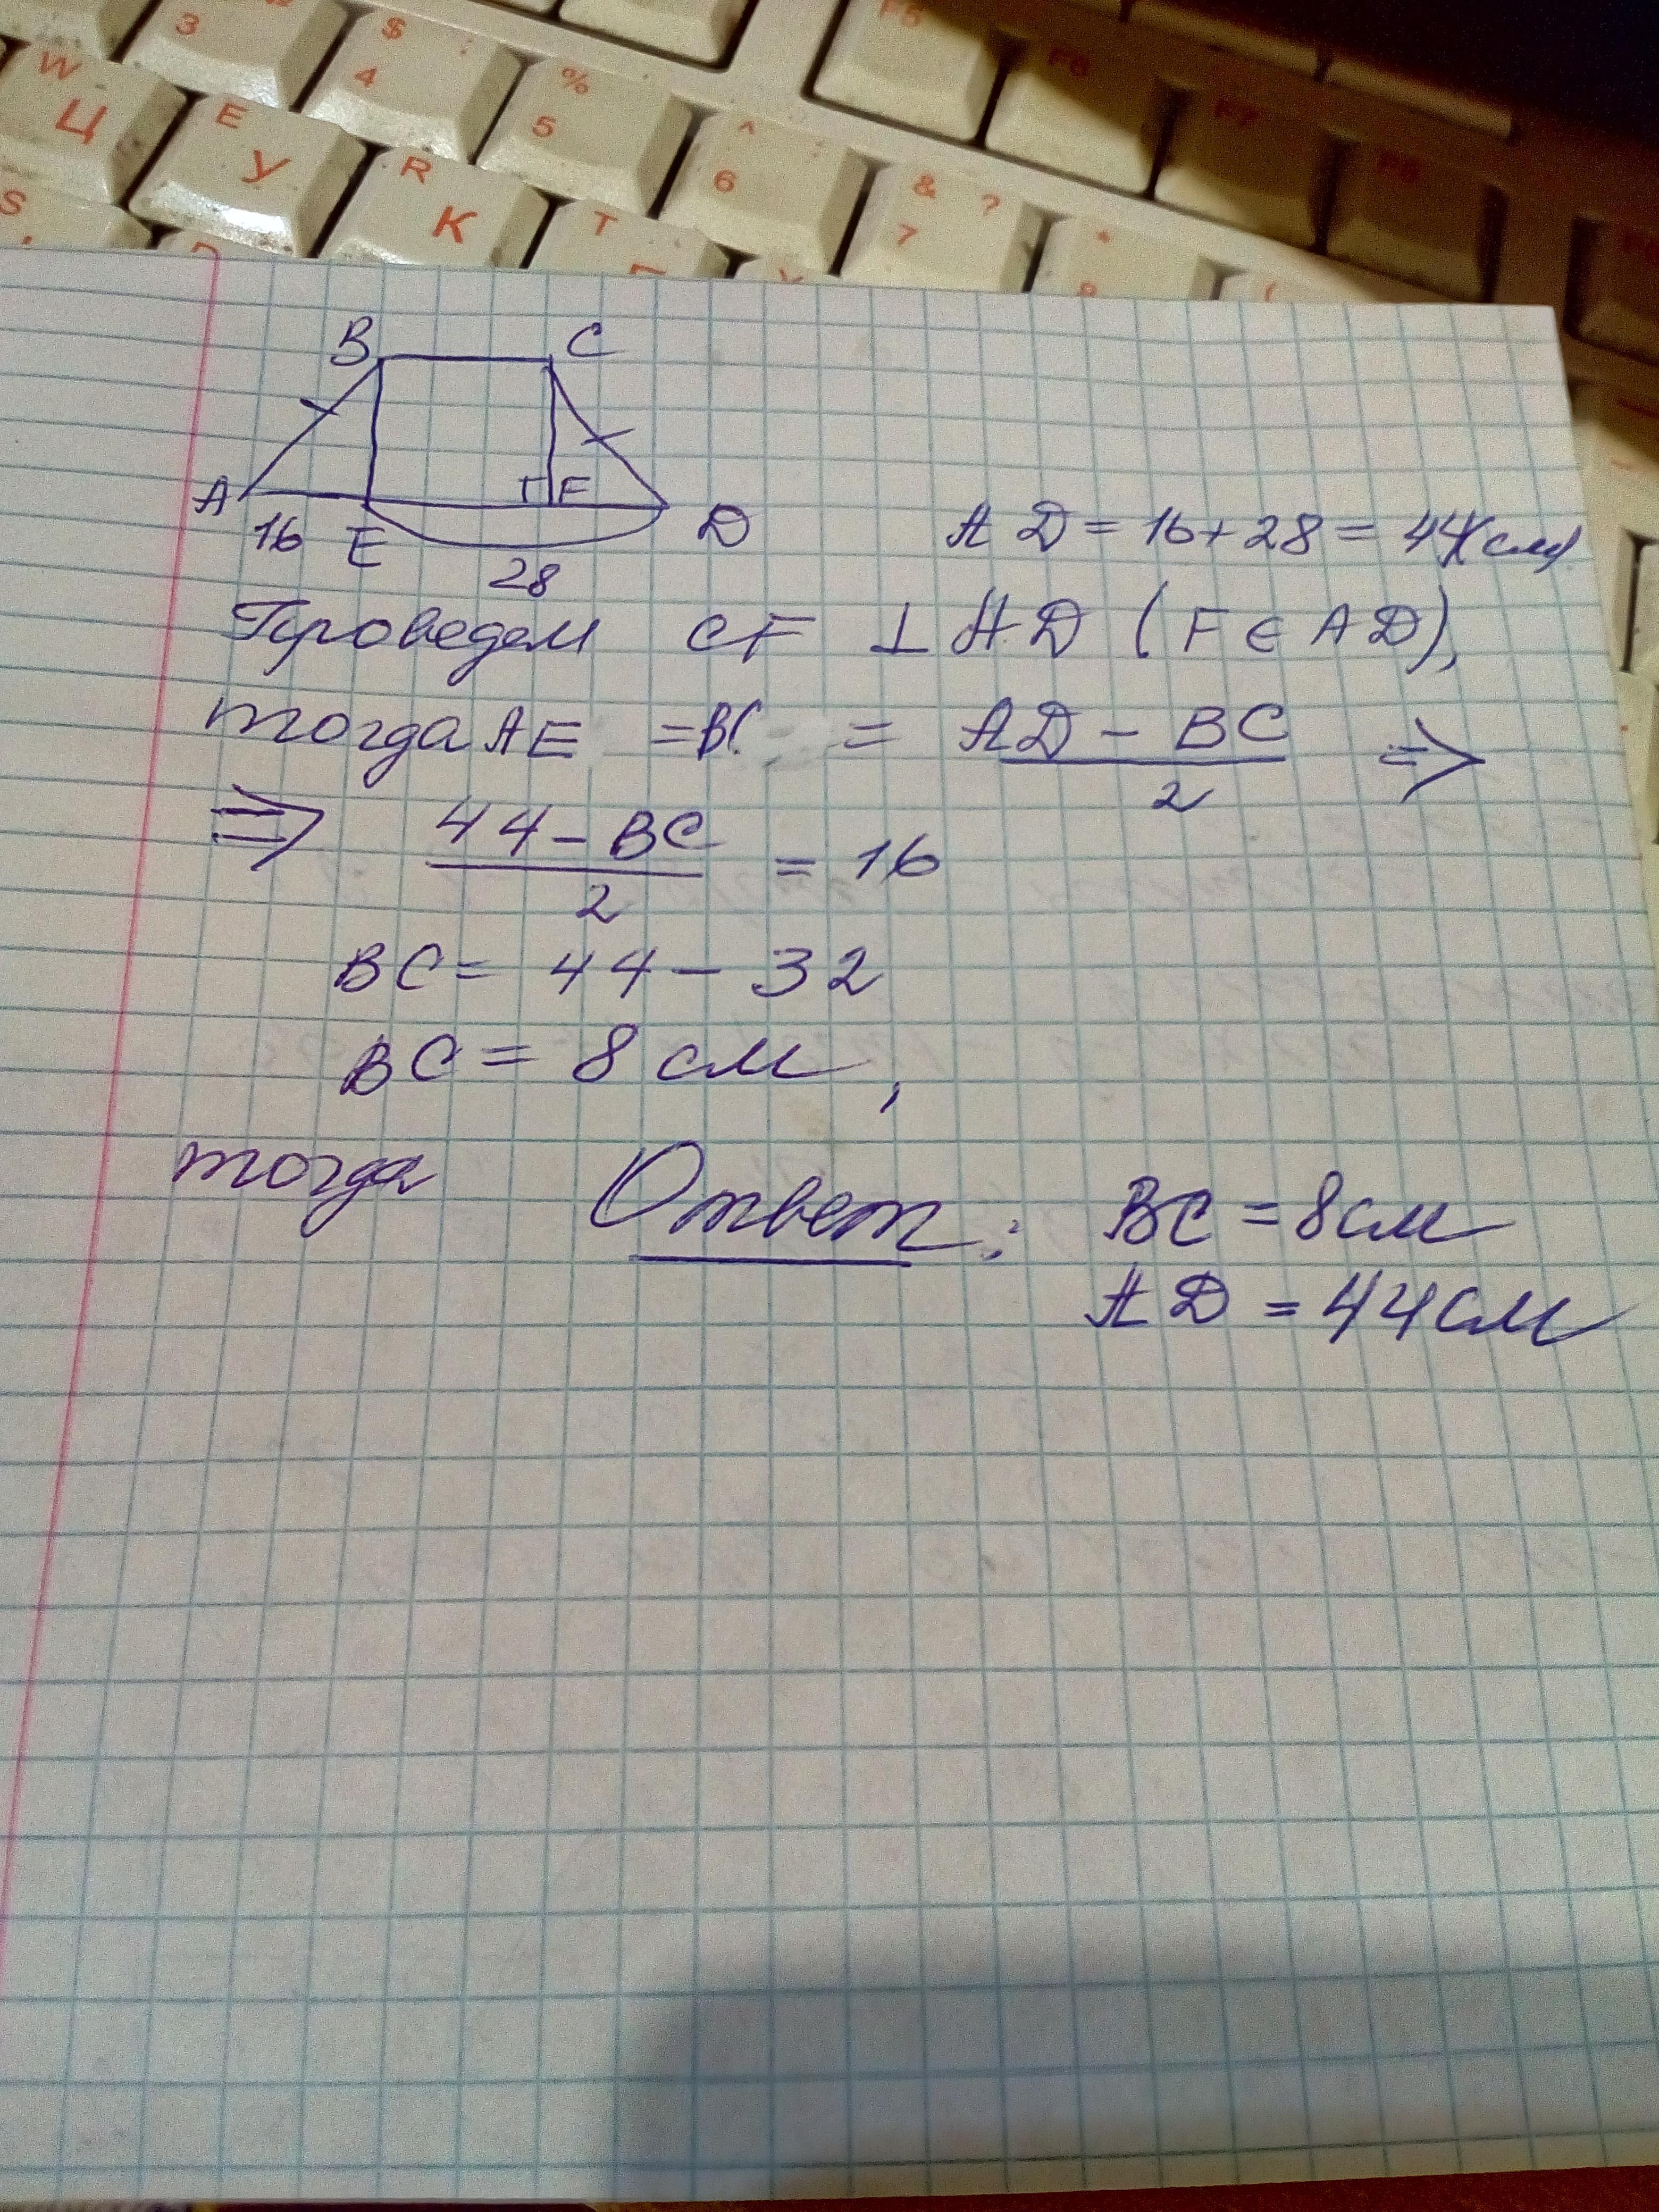 3 $ ; 4 % 5 ^ : 6 & ? 7 * 8 (
F5 F6 F7
W Ц E У R К T
S
B C
A F D
16 E
28
AD = 16 + 28 = 44(см)
Проведем CF ⊥ AD (F ∈ AD),
тогда AE = BC = \frac{AD - BC}{2} ⇒
⇒ \frac{44 - BC}{2} = 16
BC = 44 - 32
BC = 8 см,
тогда Ответ: BC = 8 см
AD = 44 см